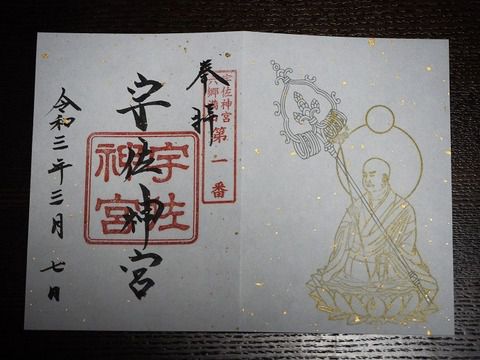 奉拝
宇佐神宮
六郷満
第一番
宇佐神宮
宇佐
神宮
令和三年三月七日